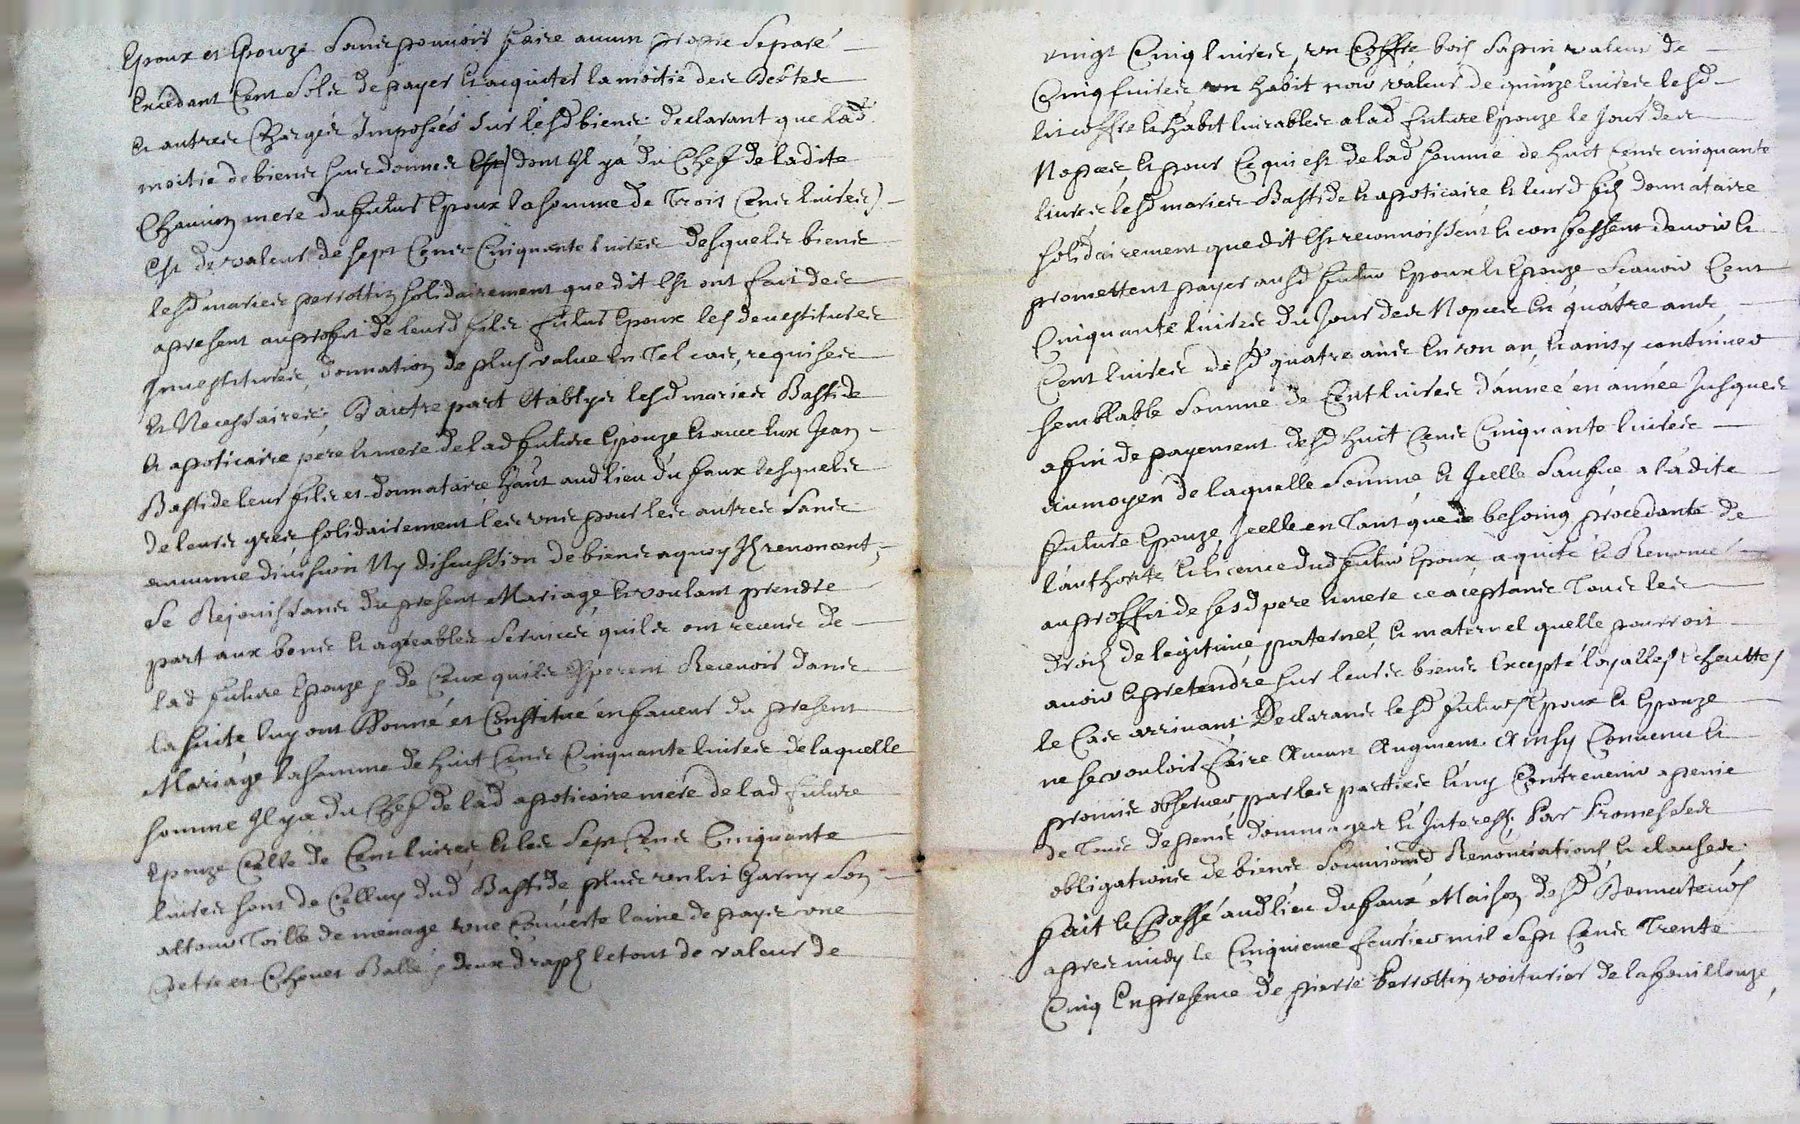 Epoux et Epouze sans pouvoir faire aucun propre separé
Excedant Cent Sols de payer et acquiter la moitié des debtes
et autres Charges Imposées sur lesd biens declarant que lad
moitié de biens sus donnés dont Il ya du Chef de ladite
mere du futur Epoux la somme de Trois Cens livres)
Est de valeur de sept Cens Cinquante livres desquels biens
lesd mariés perrottin solidairement que dit Est ont fait des
apresent au profit de leurd fils futur Epoux les devestitures
Investitures, donnation de plus value En Tel cas, requises
et Necessaires; Dautre part Etablys lesd mariés Bastide
et apoticaire père et mere de lad future Epouze et avec Eux Jean
Bastide leur fils et donnataire haut aud lieu du faux lesquels
de leurs grés, solidairement les uns pour les autres Sans
aucunne division Ny discussion de biens aquoy Ils renoncent,
Se Rejouissans du present Mariage, et voulant prendre
part aux bons et agreables services quils ont receus de
lad future Epouze, & de Ceux quils Esperent Recevoir dans
la suite luy ont Donné et Constitué en faveur du present
Mariage la somme de huit Cens Cinquante livres de laquelle
somme Il ya du Chef de lad apoticaire mere de lad future
Epouze Celle de Cent livres, et les Sept Cens Cinquante
livres sont de Celluy dud Bastide plus un lit Garny Son
altour Toille de menage une Couverte laine de pays une
Balle, & deux draps le tout de valeur de
vingt Cinq livres, un Coffre bois Sapin valeur de
Cinq livres un habit noir valeur de quinze livres lesd
lit coffre et habit livrables a lad future Epouze le Jour des
Nopces, et pour Ce qui est de lad somme de huit Cens cinquante
livres lesd mariés Bastide et apoticaire et leurd fils donnataire
solidairement que dit Est reconnoissent et confessent devoir et
promettent payer ausd futur Epoux et Epouze Scavoir Cent
Cinquante livres du Jour des Nopces En quatre ans,
Cent livres desd quatre ans En un an, et ainsy continuer
semblable Somme de Cent livres d'année en année Jusques
afin de payement desd huit Cens Cinquante livres
au moyen de laquelle Somme et Icelle Saufve a ladite
future Epouze, Icelle en Tant que de besoing procedante de
l'authorité et licence dud futur Epoux a quité et Renoncé
au proffit de sesd pere et mere ce aceptans Tous les
droits de legitime paternel, et maternel quelle pourroit
avoir et pretendre sur leurs biens Excepté loyalles Echeuttes
le Cas arrivant; Declarans lesd futurs Epoux et Epouze
ne se vouloir faire Aucun Augment Ainsy Convenu et
promis observer par les parties et ny Contrevenir a peine
de Tous depens dommages et Interests, Par Promesses
obligations de biens Soumissions Renonciations, et clauses.
fait et Passé aud lieu du faux Maison desd
apres midy le Cinquieme fevrier mil Sept Cens Trente
Cinq En presence de pierre Perrottin voiturier de la fouillouze,